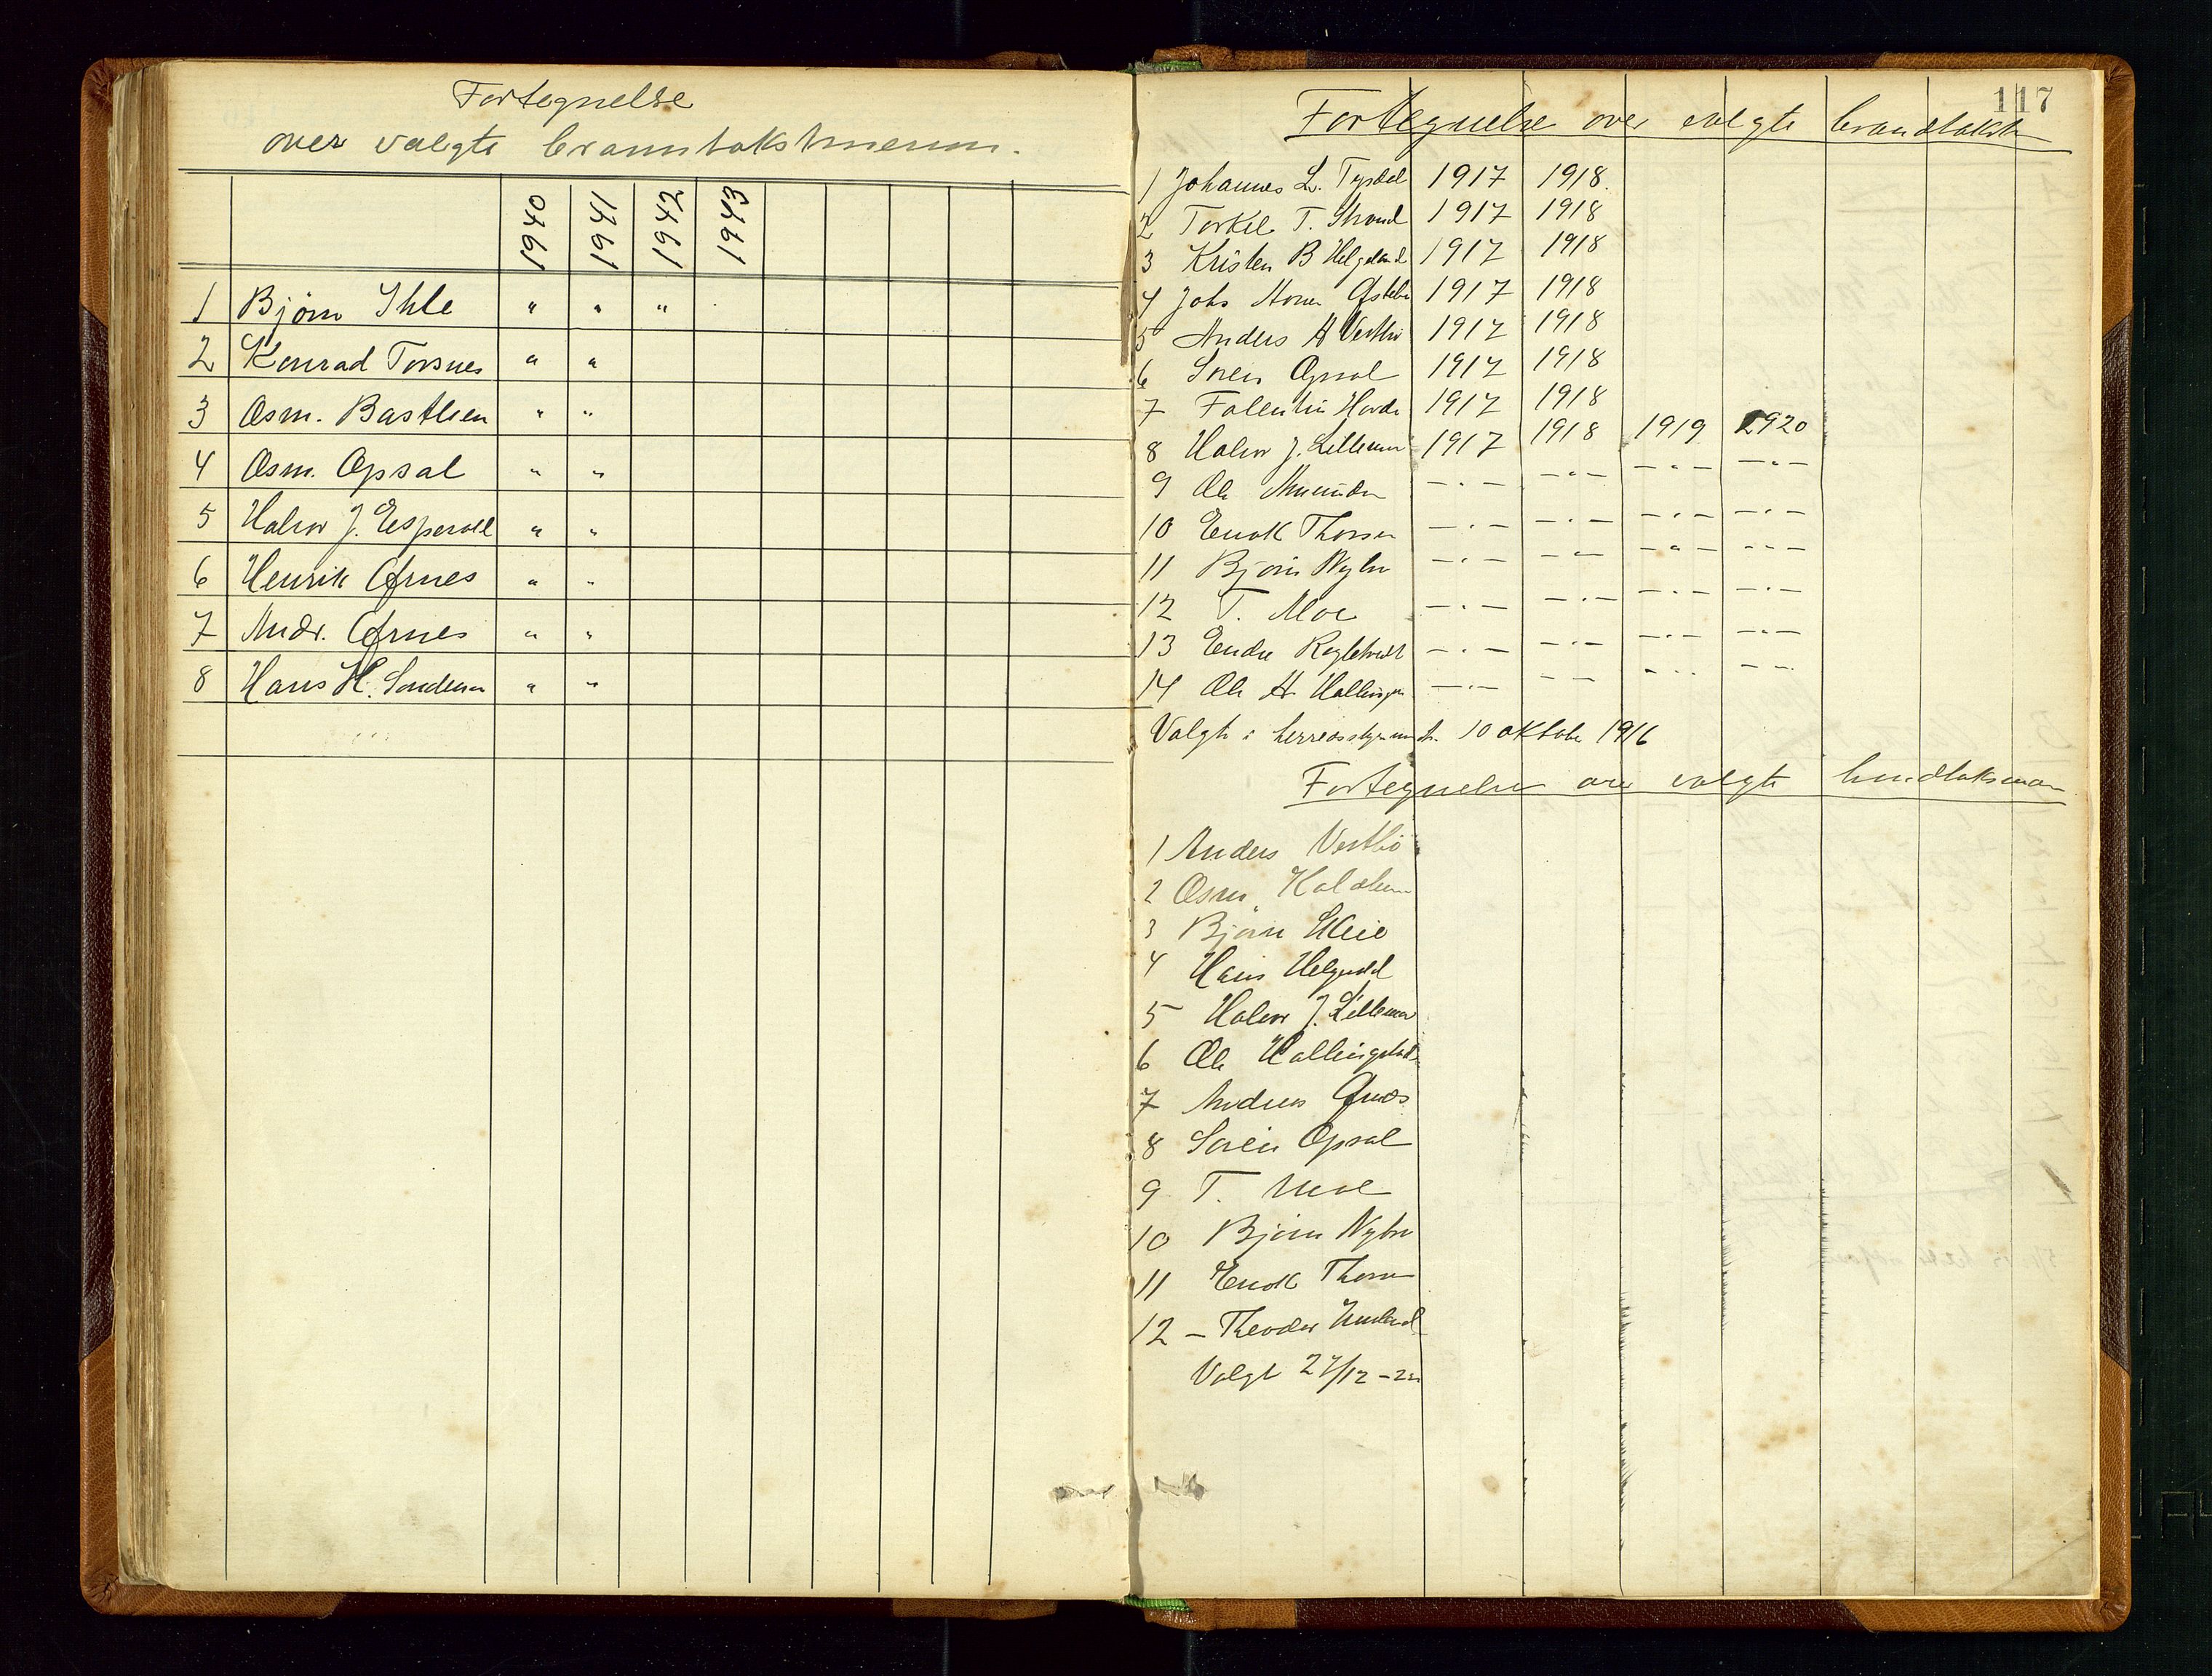 Fortegnelse
over valgte branntakstmenn.
1940 1941 1942 1943
1 Bjørn Ihle " " "
2 Konrad Torsnes " "
3 Osm. Bastlien " "
4 Osm. Opsal " "
5 Halvor J. Espevoll " "
6 Henrik Ofnes " "
7 Andr. Ofnes " "
8 Hans H. " "
117
Fortegnelse over valgte brandtakstm
1 Johannes L. Tysdal 1917 1918.
2 Torkel T. Strand 1917 1918
3 Kristen B Helgeland 1917 1918
4 Johs 1917 1918
5 Anders A Vestbø 1917 1918
6 Søren Opsal 1917 1918
7 Falentin 1917 1918
8 Halvor J. Lillemoe 1917 1918 1919 1920
9 Ole Amundsen — " — — " — — " — — " —
10 Enok Thorsen — " — — " — — " — — " —
11 Bjørn Nybru — " — — " — — " — — " —
12 T. Moe — " — — " — — " — — " —
13 Endre — " — — " — — " — — " —
14 Ole H. — " — — " — — " — — " —
Valgt i herredsstyremøte 10 oktober 1916
Fortegnelse over valgte brandtaksmen
1 Anders Vestbø
2 Osm.
3 Bjørn Skeie
4 Hans
5 Halvor J. Lillemoe
6 Ole Hallingstad
7 Andreas Ofnes
8 Søren Opsal
9 T. Moe
10 Bjørn Nybru
11 Enok Thorsen
12 – Theodor
Valgt 27/12 – 22